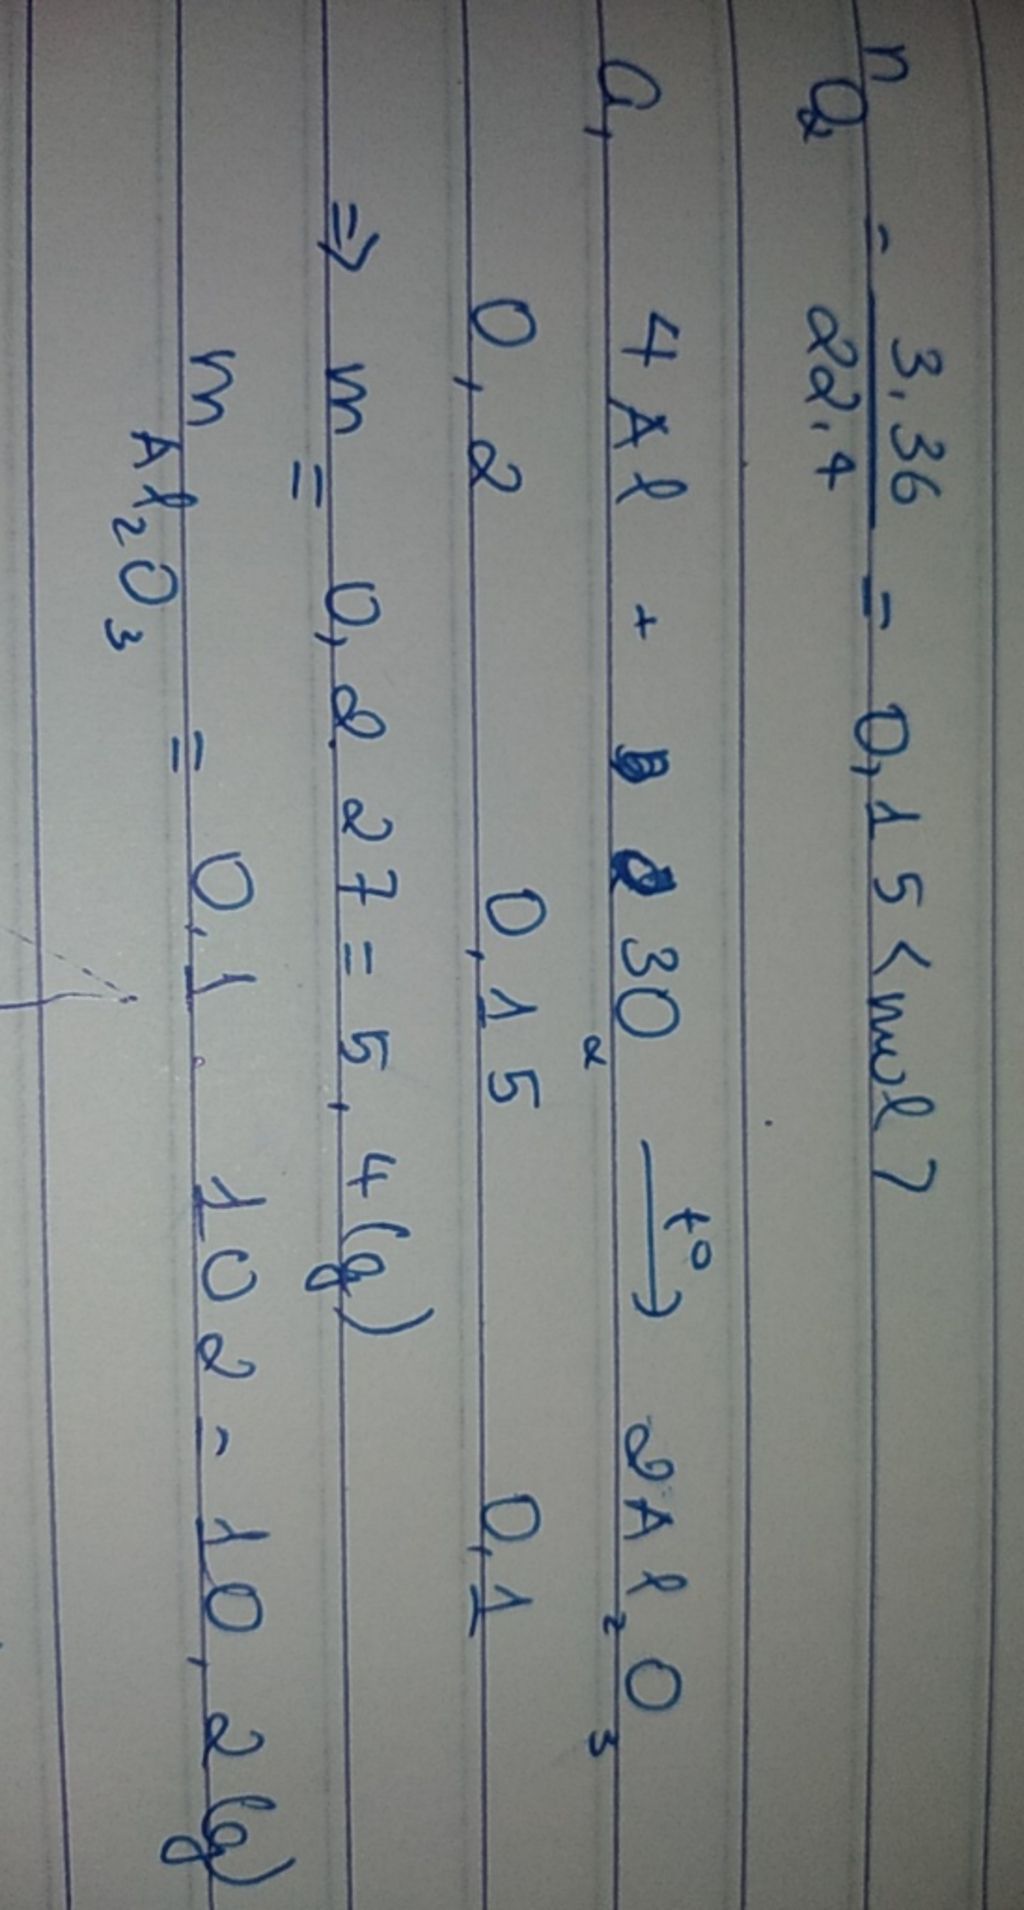 n O2 = 3,36 / 22,4 = 0,15 (mol)
a, 4Al + 3O2 →t° 2Al2O3
0,2 0,15 0,1
=> m = 0,2.27 = 5,4 (g)
m Al2O3 = 0,1.102 = 10,2 (g)